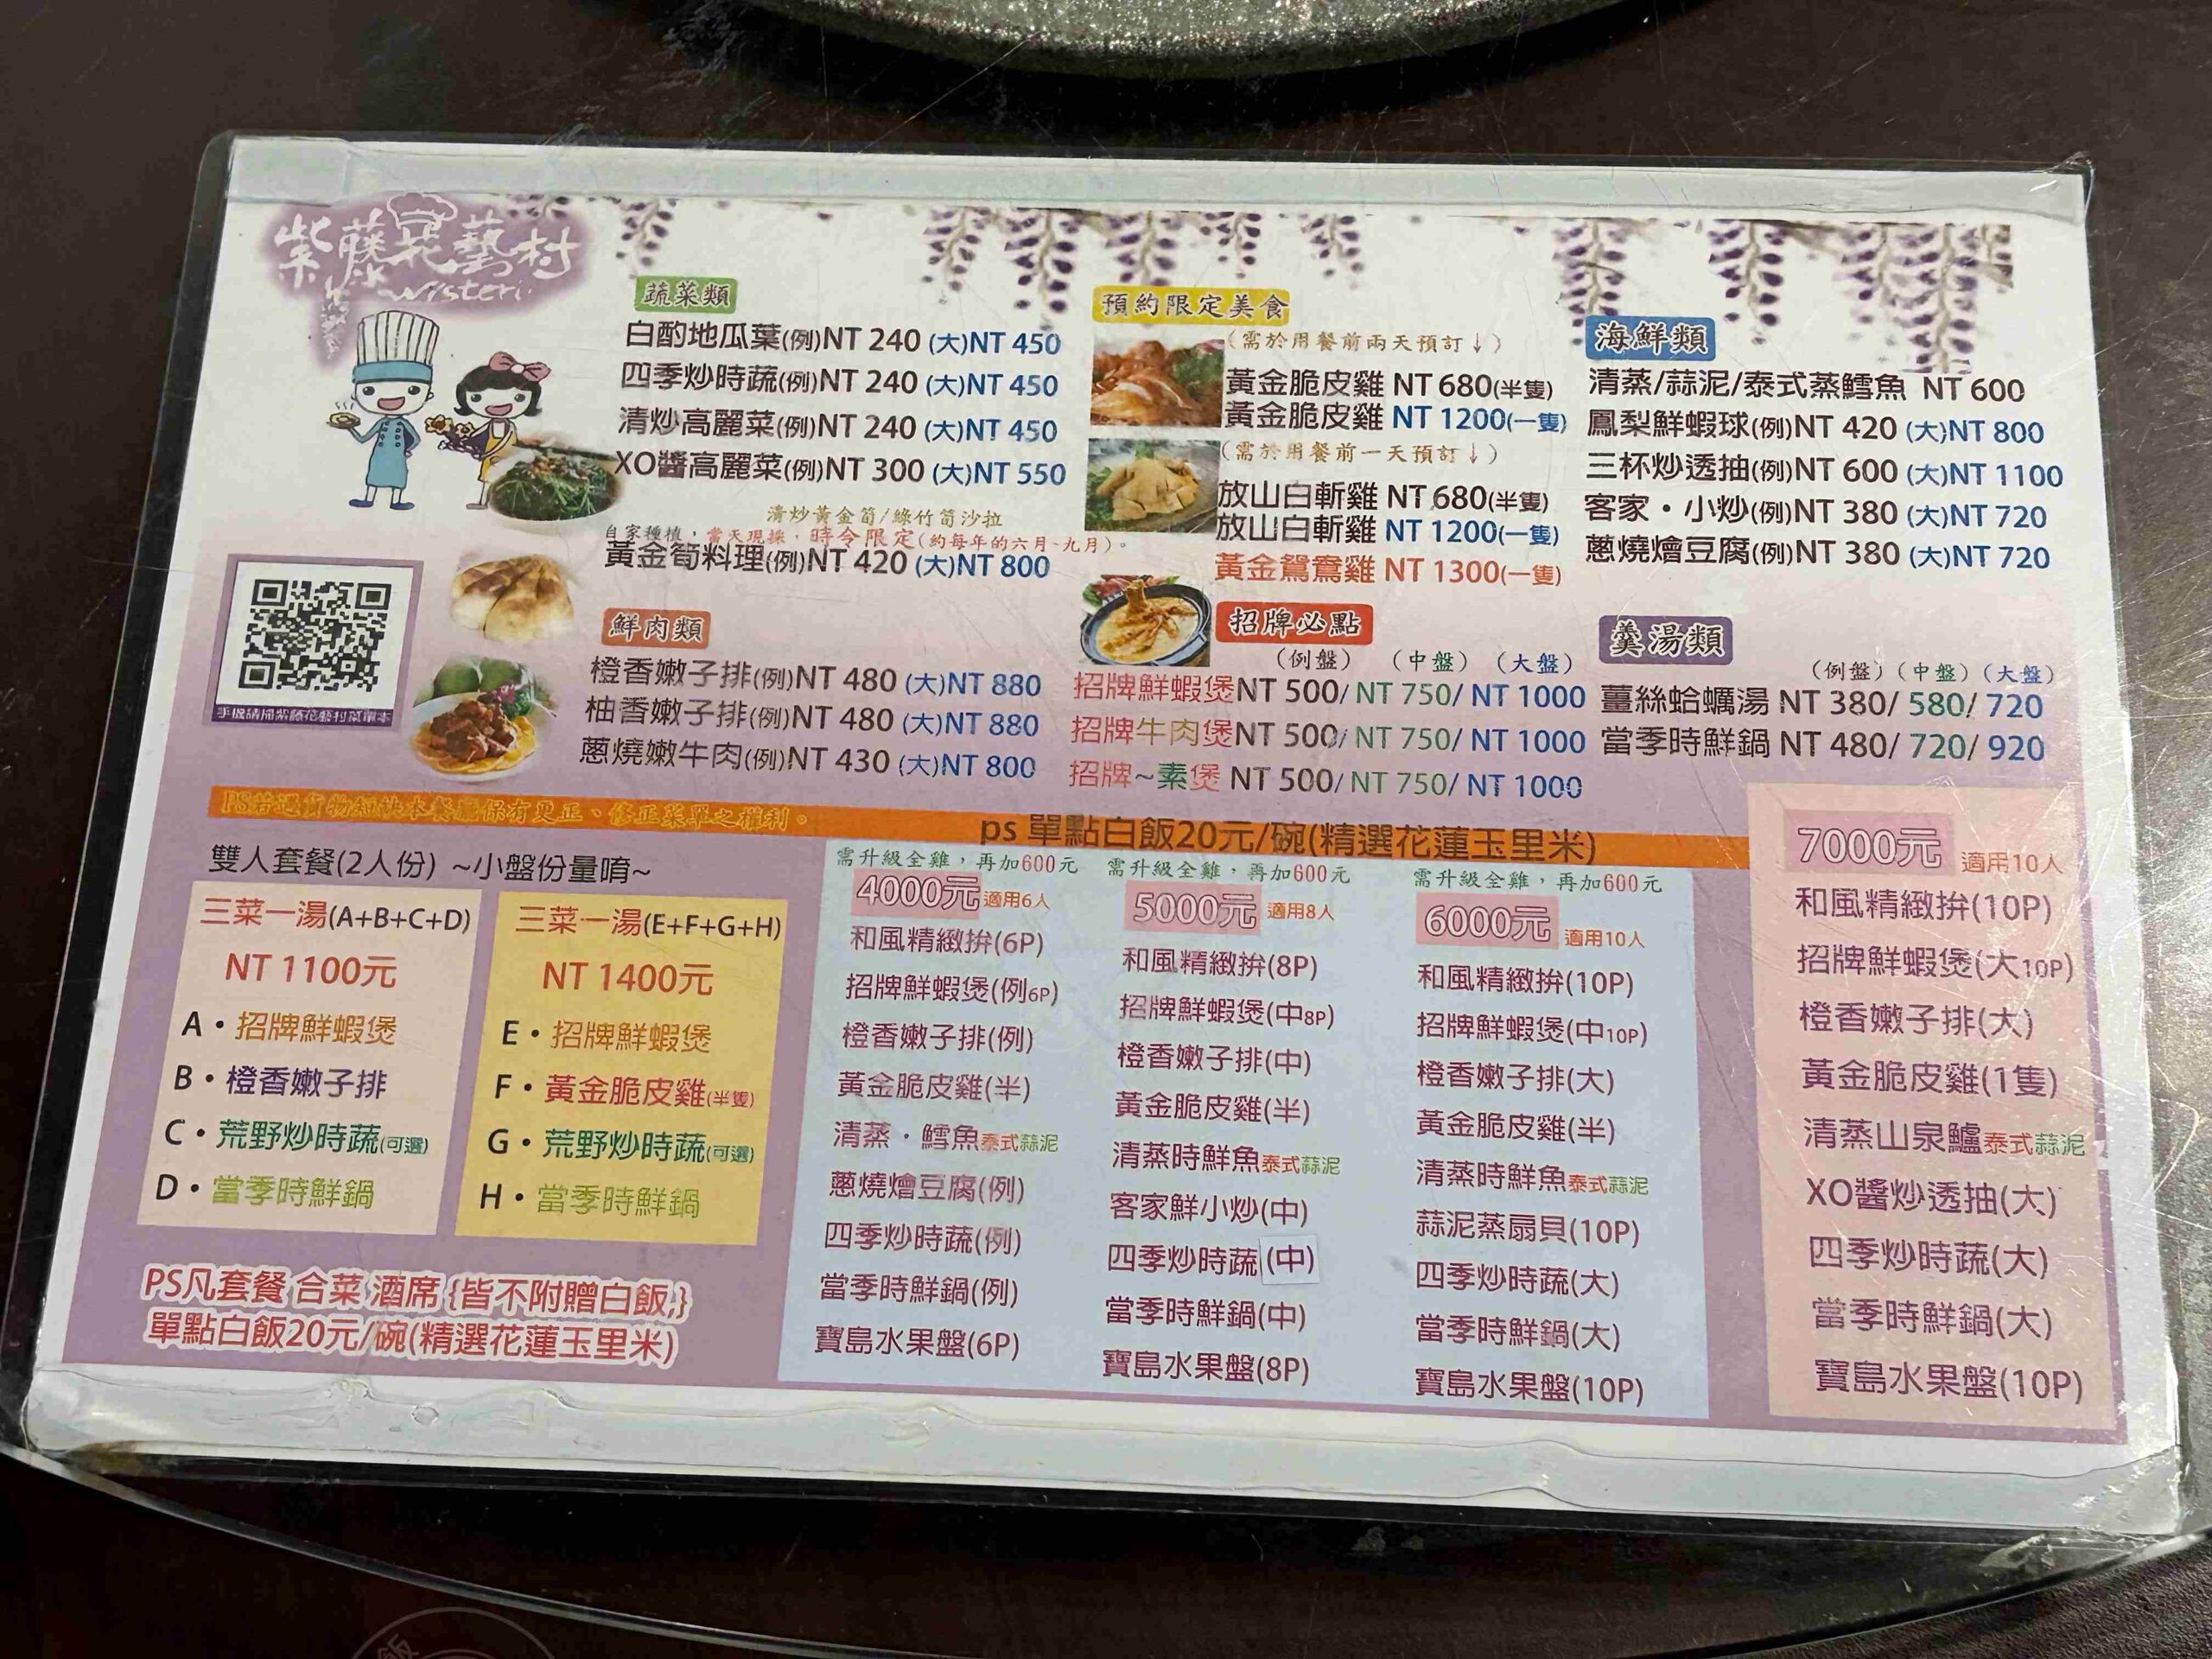 紫藤花藝村
Wisteri
蔬菜類
白酌地瓜葉(例)NT 240 (大)NT 450
四季炒時蔬(例)NT 240 (大)NT 450
清炒高麗菜(例)NT 240 (大)NT 450
XO醬高麗菜(例)NT 300 (大)NT 550
清炒黃金筍/綠竹筍沙拉
自家種植,當天現採,時令限定(約每年的六月~九月)。
黃金筍料理(例)NT 420 (大)NT 800
鮮肉類
橙香嫩子排(例)NT 480 (大)NT 880
柚香嫩子排(例)NT 480 (大)NT 880
蔥燒嫩牛肉(例)NT 430 (大)NT 800
預約限定美食
(需於用餐前兩天預訂↓)
黃金脆皮雞 NT 680(半隻)
黃金脆皮雞 NT 1200(一隻)
(需於用餐前一天預訂↓)
放山白斬雞 NT 680(半隻)
放山白斬雞 NT 1200(一隻)
黃金鴛鴦雞 NT 1300(一隻)
招牌必點
(例盤) (中盤) (大盤)
招牌鮮蝦煲NT 500/ NT 750/ NT 1000
招牌牛肉煲NT 500/ NT 750/ NT 1000
招牌~素煲 NT 500/ NT 750/ NT 1000
海鮮類
清蒸/蒜泥/泰式蒸鱈魚 NT 600
鳳梨鮮蝦球(例)NT 420 (大)NT 800
三杯炒透抽(例)NT 600 (大)NT 1100
客家・小炒(例)NT 380 (大)NT 720
蔥燒燴豆腐(例)NT 380 (大)NT 720
羹湯類
(例盤)(中盤)(大盤)
薑絲蛤蠣湯 NT 380/ 580/ 720
當季時鮮鍋 NT 480/ 720/ 920
PS若遇貨物短缺本餐廳保有更正、修正菜單之權利。
ps 單點白飯20元/碗(精選花蓮玉里米)
雙人套餐(2人份) ~小盤份量唷~
三菜一湯(A+B+C+D)
NT 1100元
A・招牌鮮蝦煲
B・橙香嫩子排
C・荒野炒時蔬(可選)
D・當季時鮮鍋
三菜一湯(E+F+G+H)
NT 1400元
E・招牌鮮蝦煲
F・黃金脆皮雞(半隻)
G・荒野炒時蔬(可選)
H・當季時鮮鍋
PS凡套餐 合菜 酒席 {皆不附贈白飯,}
單點白飯20元/碗(精選花蓮玉里米)
需升級全雞,再加600元
4000元 適用6人
和風精緻拚(6P)
招牌鮮蝦煲(例6P)
橙香嫩子排(例)
黃金脆皮雞(半)
清蒸・鱈魚泰式蒜泥
蔥燒燴豆腐(例)
四季炒時蔬(例)
當季時鮮鍋(例)
寶島水果盤(6P)
需升級全雞,再加600元
5000元 適用8人
和風精緻拚(8P)
招牌鮮蝦煲(中8P)
橙香嫩子排(中)
黃金脆皮雞(半)
清蒸時鮮魚泰式蒜泥
客家鮮小炒(中)
四季炒時蔬(中)
當季時鮮鍋(中)
寶島水果盤(8P)
需升級全雞,再加600元
6000元 適用10人
和風精緻拚(10P)
招牌鮮蝦煲(中10P)
橙香嫩子排(大)
黃金脆皮雞(半)
清蒸時鮮魚泰式蒜泥
蒜泥蒸扇貝(10P)
四季炒時蔬(大)
當季時鮮鍋(大)
寶島水果盤(10P)
7000元 適用10人
和風精緻拚(10P)
招牌鮮蝦煲(大10P)
橙香嫩子排(大)
黃金脆皮雞(1隻)
清蒸山泉鱸泰式蒜泥
XO醬炒透抽(大)
四季炒時蔬(大)
當季時鮮鍋(大)
寶島水果盤(10P)